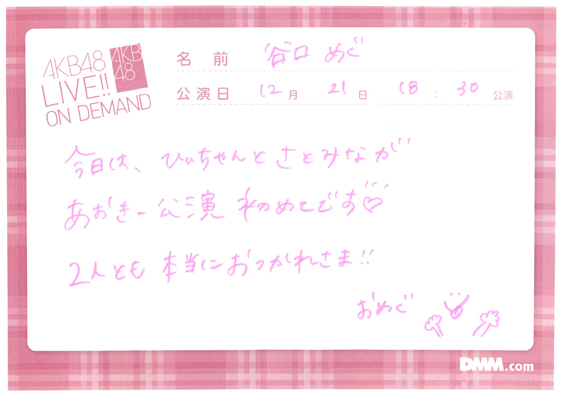 AKB48
LIVE!!
ON DEMAND
AKB
48
名前 谷口 めぐ
公演日 12月 21日 18:30公演
今日は、ひぃちゃんとさとみなが
あおきー公演 初めてです♡
2人とも 本当におつかれさま!!
おめぐ
DMM.com